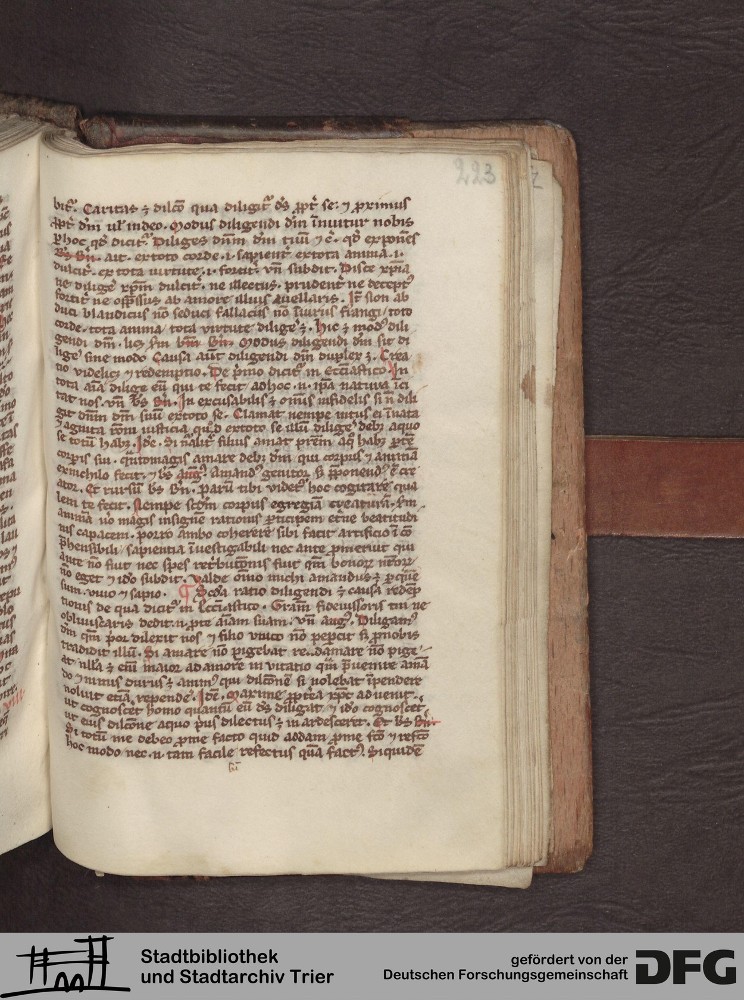 223
bit᷑. Caritas ⁊ dilc̄o qua diligit᷑ dˢ ꝓpt᷑ se: ⁊ ꝓximus
ꝓpt᷑ dm̄ ul᷑ indeo. Modus diligendi dm̄ īnuitur nobis
ꝑhoc qd̄ dicit᷑. Diliges dn̄m dm̄ tuū ⁊ c᷑. qd̄ exponēs
bs̄ bn̄. ait. ex toto corde .i. sapient᷑. ex tota anima .i.
dulcit᷑. ex tota uirtute .i. fortit᷑. vn̄ subdit. Disce xp̄ia
ne dilige᷑ xp̄m dulcit᷑. ne illectus. prudent᷑ ne decept᷑
fortit᷑ ne opp̄ssus ab amore illius auellaris. It᷑ sion ab
duci blandiciis nō seduci fallaciis nō īiuriis frangi toto
corde. tota anima tota uirtute dilige᷑ ē. hic ē mod᷑ dili
gendi dm̄. Modus diligendi dm̄ sit di
lige᷑ sine modo Causa aūt diligendi dm̄ duplex ē. Crea
tio videlic᷑ ⁊ redemptio. De p̄mo dicit᷑ in Ecc̄iastico. In
tota aīa dilige eū qui te fecit adhoc .n. ip̄a natura īci
tat nos. vn̄ bs̄ bn̄. In excusabilis ē om̄is infidelis si n̄ dili
git dn̄m dm̄ suū ex toto se. Clamat nempe intus ei īnata
⁊ agnita rōni iusticia quod ex toto se illū dilige᷑ deb᷑ aquo
se totū hab᷑. Idē. Si nālit᷑ filius amat pr̄em aq̄ hab᷑ ꝑtē
corꝑis sui. quātomagis amare deb᷑ dm̄ qui corpus ⁊ animā
exnichilo fecit. ⁊ bs̄ aug᷑. Amand᷑ genitor s᷑ p̄ponend᷑ ē cre
ator. Et rursū bs̄ bn̄. Parū tibi videt᷑ hoc cogitare qua
lem te fecit. Nempe scd̄m corpus egregiā creaturā. s᷑m
animā uō magis insignē rationis ꝑticipem et̄ne beatitudi
nis capacem. porro ambo coherere sibi facit artificio īcō
p̄hensibili sapientia īuestigabili nec ante ꝓmeruit qui
ante nō fuit nec spes ret᷑butōnis fuit qm̄ bonoꝝ nr̄oꝝ
nō eget ⁊ iō subdit. Valde oīno michi amandus ē ꝑ quē
sum. viuo ⁊ sapio. ¶ Scd̄a ratio diligendi ē causa redēp
tionis de qua dicit᷑ in Ecc̄iastico. Gr̄am fideiussoris tui ne
obliuiscaris dedit .n. ꝓte aīam suam. vn̄ aug᷑. Diligam᷑
dm̄ qm̄ p̄or dilexit nos ⁊ filio vnico nō peꝑcit s᷑ ꝓnobis
tradidit illū. Si amare nō pigebat redamare nō pige
at nll̄a ē enī maior ad amorē inuitatio qm̄ p̄uenire amā
do ⁊ nimis durus ē anim᷑ qui dilc̄onē si nolebat īpendere
noluit etiā rependē. Idē. Maxime ꝓpt᷑ea xp̄c aduenit.
ut cognoscet homo quantū eū dˢ diligat ⁊ iō cognoscet
ut eius dilc̄one aquo p̄us dilectus ē inardesceret. Et bs̄ bn̄.
Si totū me debeo ꝓme facto quid addam ꝓme fc̄o ⁊ refc̄o
hoc modo nec .n. tam facile refectus quā fact᷑. Siquidē
Stadtbibliothek
und Stadtarchiv Trier
gefördert von der
Deutschen Forschungsgemeinschaft
DFG